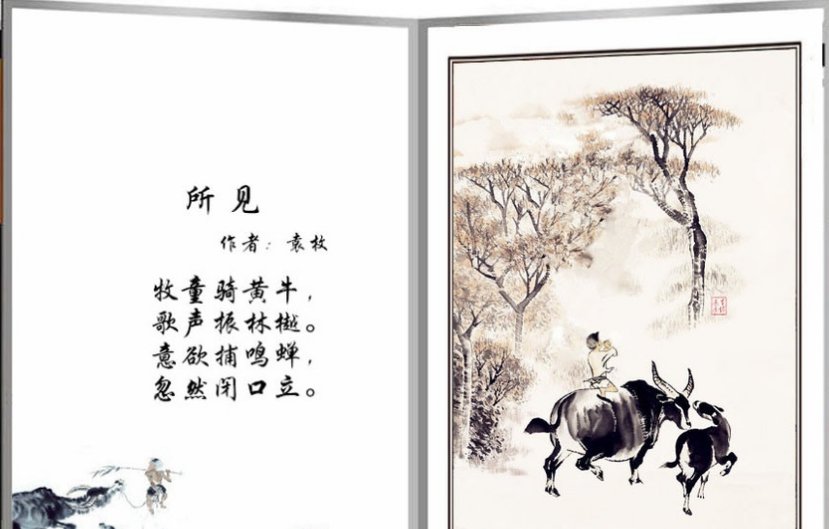 所见
作者：袁枚
牧童骑黄牛，
歌声振林樾。
意欲捕鸣蝉，
忽然闭口立。